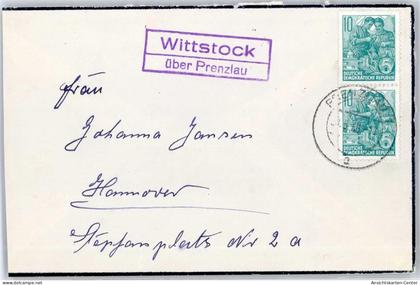 Wittstock
über Prenzlau
10
DEUTSCHE
DEMOKRATISCHE REPUBLIK
10
DEUTSCHE
DEMOKRATISCHE REPUBLIK
Frau
Johanna Jansen
Hannover
Stephansplatz Nr 2 a
www.ansichtskarten-center.de
Ansichtskarten-Center